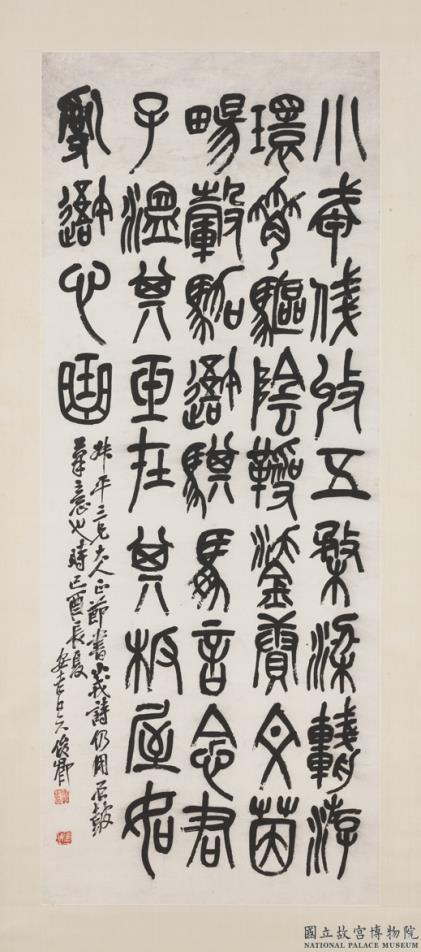 小戎俴收五楘梁輈游
環脅驅陰靷鋈續文茵
暢轂駕我騏馵言念君
子溫其玉在其板屋如
亂我心曲
平三兄大人正節書小戎詩仍用石鼓
筆意也時己酉長夏
安吉吳俊卿
國立故宮博物院
NATIONAL PALACE MUSEUM